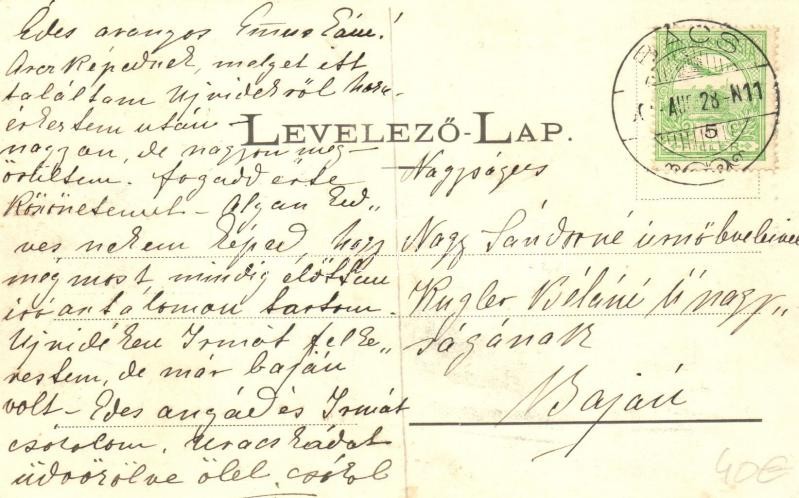 Édes aranyos Emus Lám!
Arczképednek, melyet itt
találtam Ujvidékről haza-
érkeztem után –
nagyon, de nagyon meg-
örültem. fogadd érte
köszönetemet – olyan ked„
ves nekem képed hogy
még most, mindig előttem
iróasztalomon tartom.
Ujvidéken Irmát felke„
restem, de már baján
volt – Édes anyád és Irmát
csókolom. Uracskádat
üdvözölve ölel, csókol
LEVELEZŐ-LAP.
Nagyságos
Nagy Sándorné úrnő leveivel
Kugler Béláné Ú nagy„
ságának
Baján
BÁCS
AUG 28 N11
5
FILLER
40€